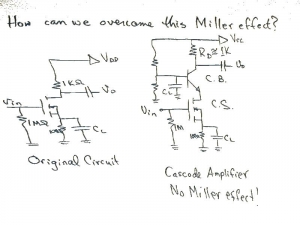 How can we overcome this Miller effect?
VDD
1KΩ
Vo
Vin
1MΩ
CL
Original Circuit
Vcc
RD≅1K
Vo
C.B.
CL
C.S.
Vin
1M
CL
Cascode Amplifier
No Miller effect!